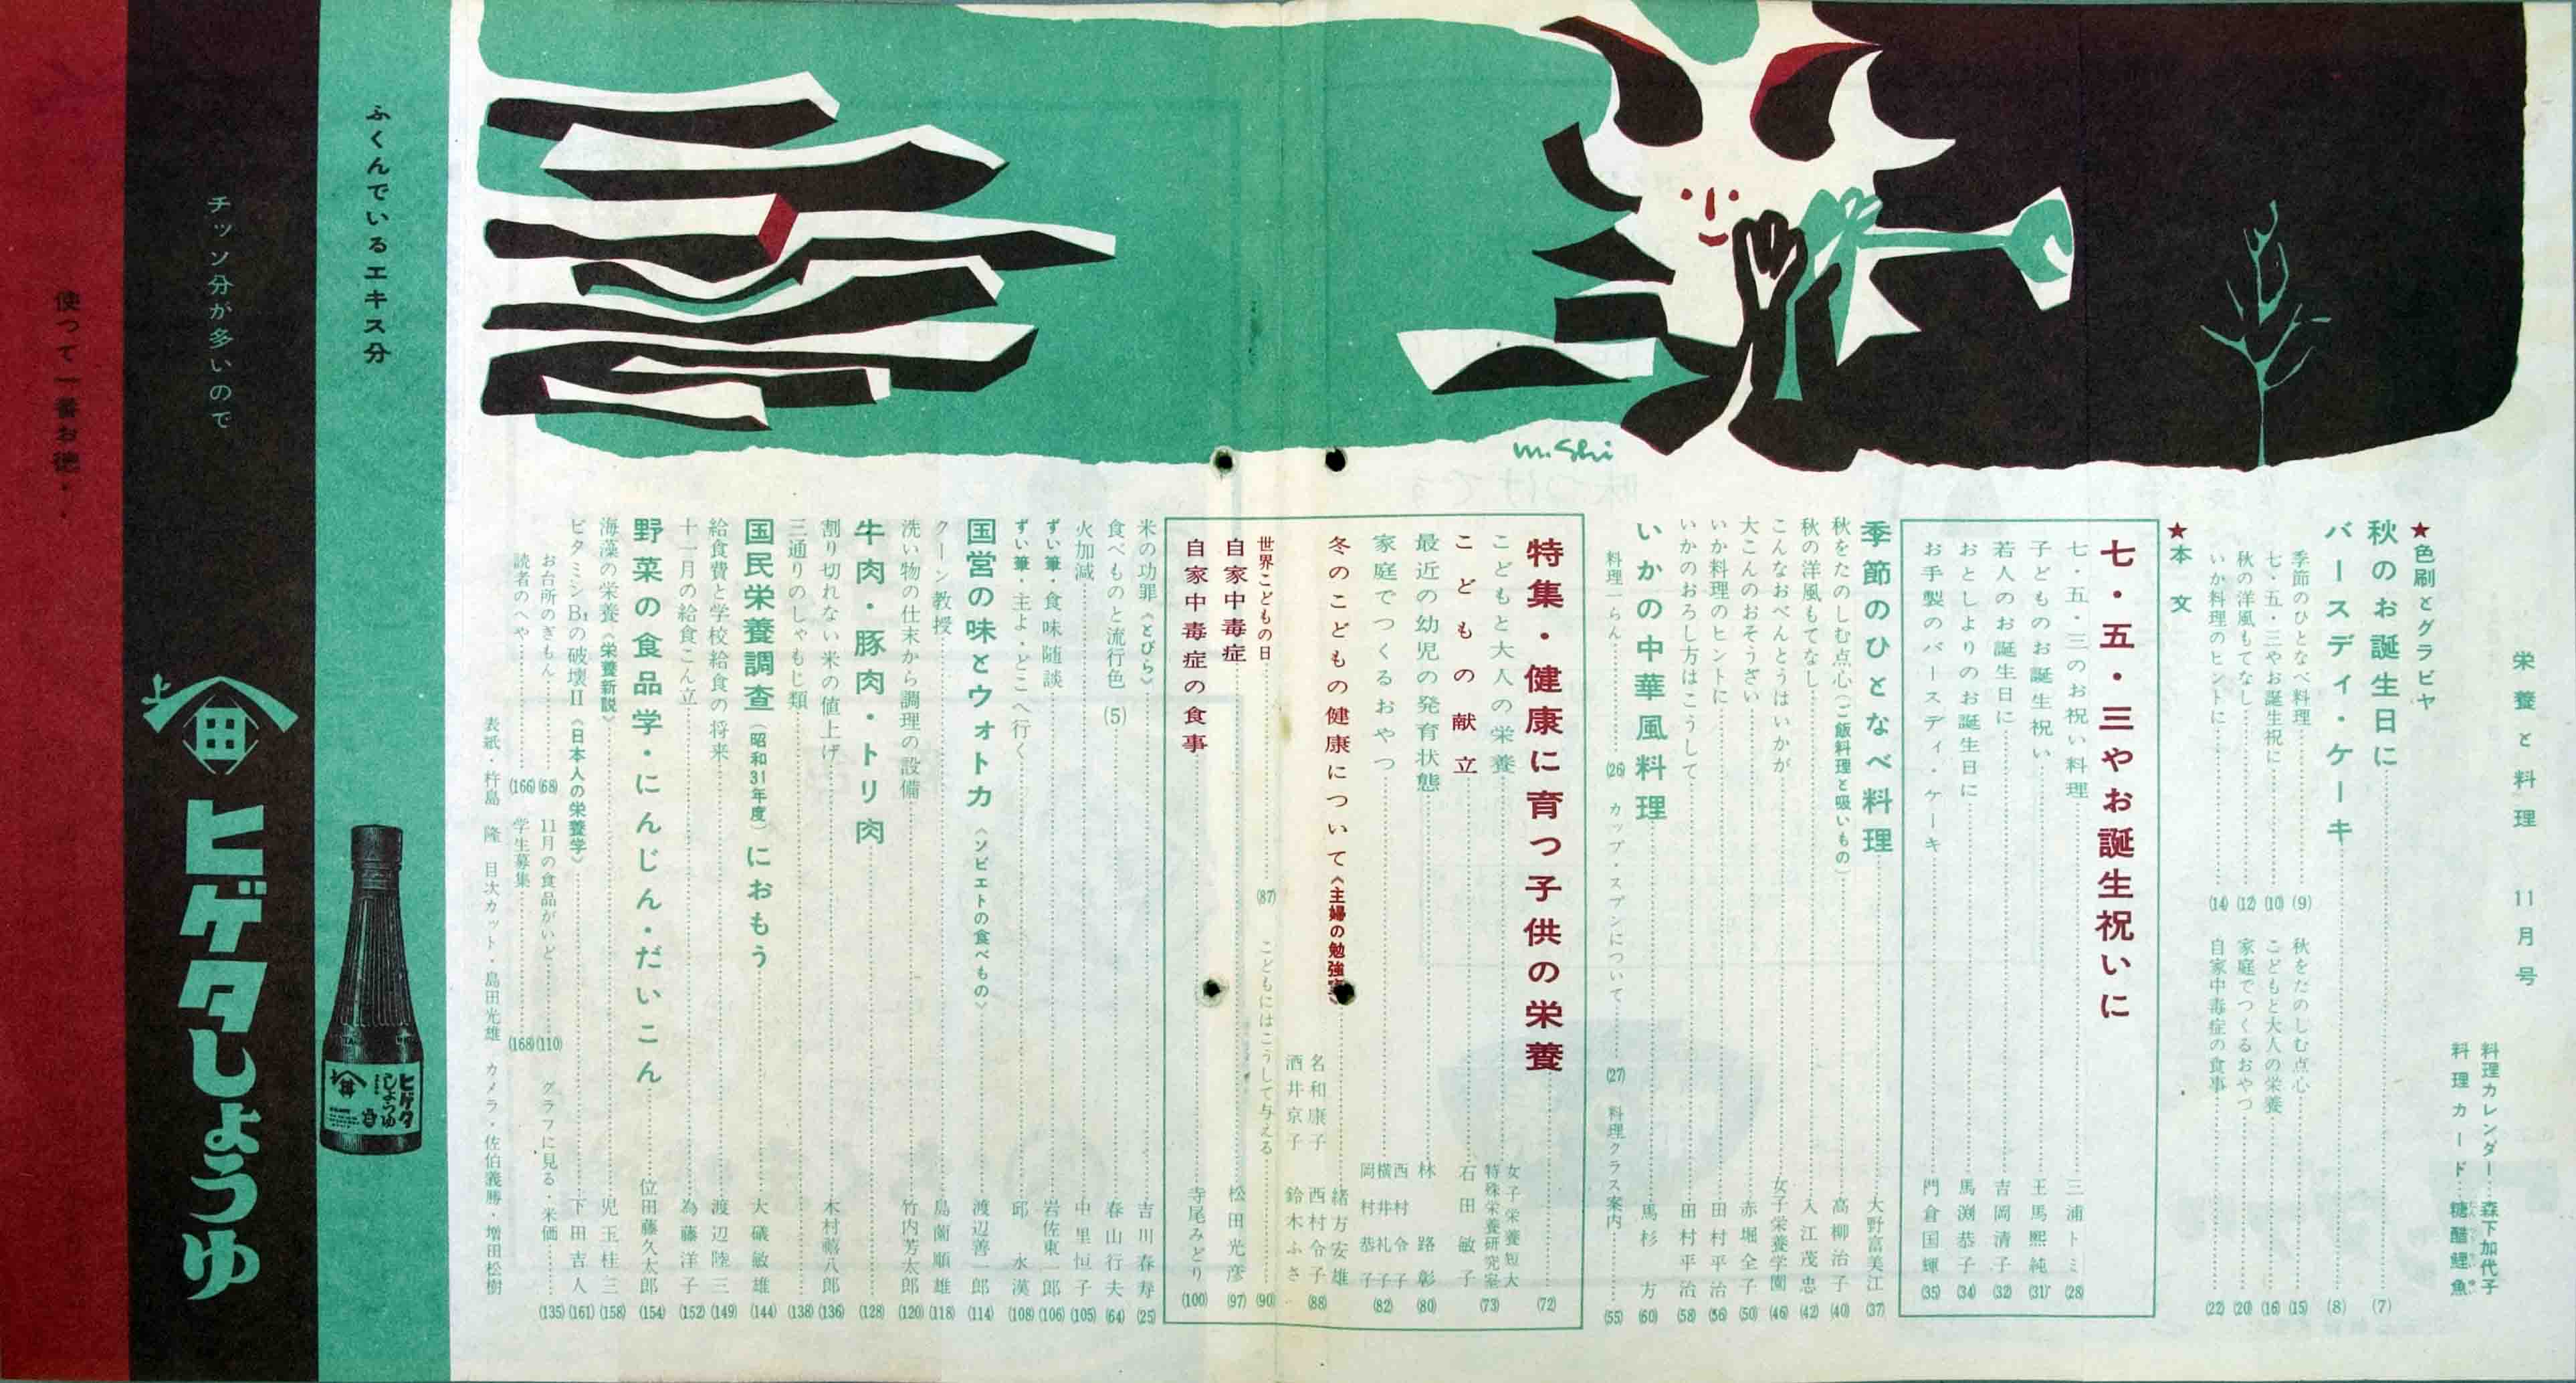 栄養と料理 11月号
料理カレンダー・森下加代子
料理カード・糖醋鯉魚
★色刷とグラビヤ
秋のお誕生日に (7)
バースディ・ケーキ (8)
季節のひとなべ料理 (9) 秋をたのしむ点心 (15)
七・五・三やお誕生祝に (10) こどもと大人の栄養 (16)
秋の洋風もてなし (12) 家庭でつくるおやつ (20)
いか料理のヒントに (14) 自家中毒症の食事 (22)
★本文
七・五・三やお誕生祝いに
七・五・三のお祝い料理 三浦トミ (28)
子どものお誕生祝い 王馬熙純 (31)
若人のお誕生日に 吉岡清子 (32)
おとしよりのお誕生日に 馬渕恭子 (34)
お手製のバースディ・ケーキ 門倉国輝 (35)
季節のひとなべ料理 大野富美江 (37)
秋をたのしむ点心(ご飯料理と吸いもの) 高柳治子 (40)
秋の洋風もてなし 入江茂忠 (42)
こんなおべんとうはいかが 女子栄養学園 (46)
大こんのおそうざい 赤堀全子 (50)
いか料理のヒントに 田村平治 (56)
いかのおろし方はこうして 田村平治 (58)
いかの中華風料理 馬杉方 (60)
料理一らん (26) カップ・スプンについて (27) 料理クラス案内 (55)
特集・健康に育つ子供の栄養 (72)
こどもと大人の栄養 女子栄養短大 特殊栄養研究室 (73)
こどもの献立 石田敏子
最近の幼児の発育状態 林路彰 (80)
家庭でつくるおやつ 西村令子 横井礼子 岡村恭子 (82)
冬のこどもの健康について《主婦の勉強室》 緒方安雄 名和康子 西村令子 酒井京子 鈴木ふさ (88)
世界こどもの日 (87) こどもにはこうして与える (90)
自家中毒症 松田光彦 (97)
自家中毒症の食事 寺尾みどり (100)
米の功罪《とびら》 吉川春寿 (25)
食べものと流行色 (5) 春山行夫 (64)
火加減 中里恒子 (105)
ずい筆・食味随談 岩佐東一郎 (106)
ずい筆・主よ・どこへ行く 邱永漢 (108)
国営の味とウォトカ《ソビエトの食べもの》 渡辺善一郎 (114)
クーン教授 島薗順雄 (118)
洗い物の仕末から調理の設備 竹内芳太郎 (120)
牛肉・豚肉・トリ肉 (128)
割り切れない米の値上げ 木村禧八郎 (136)
三通りのしゃもじ類 (138)
国民栄養調査(昭和31年度)におもう 大礒敏雄 (144)
給食費と学校給食の将来 渡辺陸三 (149)
十一月の給食こん立 為藤洋子 (152)
野菜の食品学・にんじん・だいこん 位田藤久太郎 (154)
海藻の栄養《栄養新説》 児玉桂三 (158)
ビタミンB₁の破壊Ⅱ《日本人の栄養学》 下田吉人 (161)
お台所のぎもん (68) 11月の食品がいど (110) グラフに見る・米価 (135)
読者のへや (166) 学生募集 (168)
表紙・杵島隆 目次カット・島田光雄 カメラ・佐伯義勝・増田松樹
M.Shi
ふくんでいるエキス分
チッソ分が多いので
使つて一番お徳・・
上 田
ヒゲタしょうゆ
ヒゲタ
しょうゆ